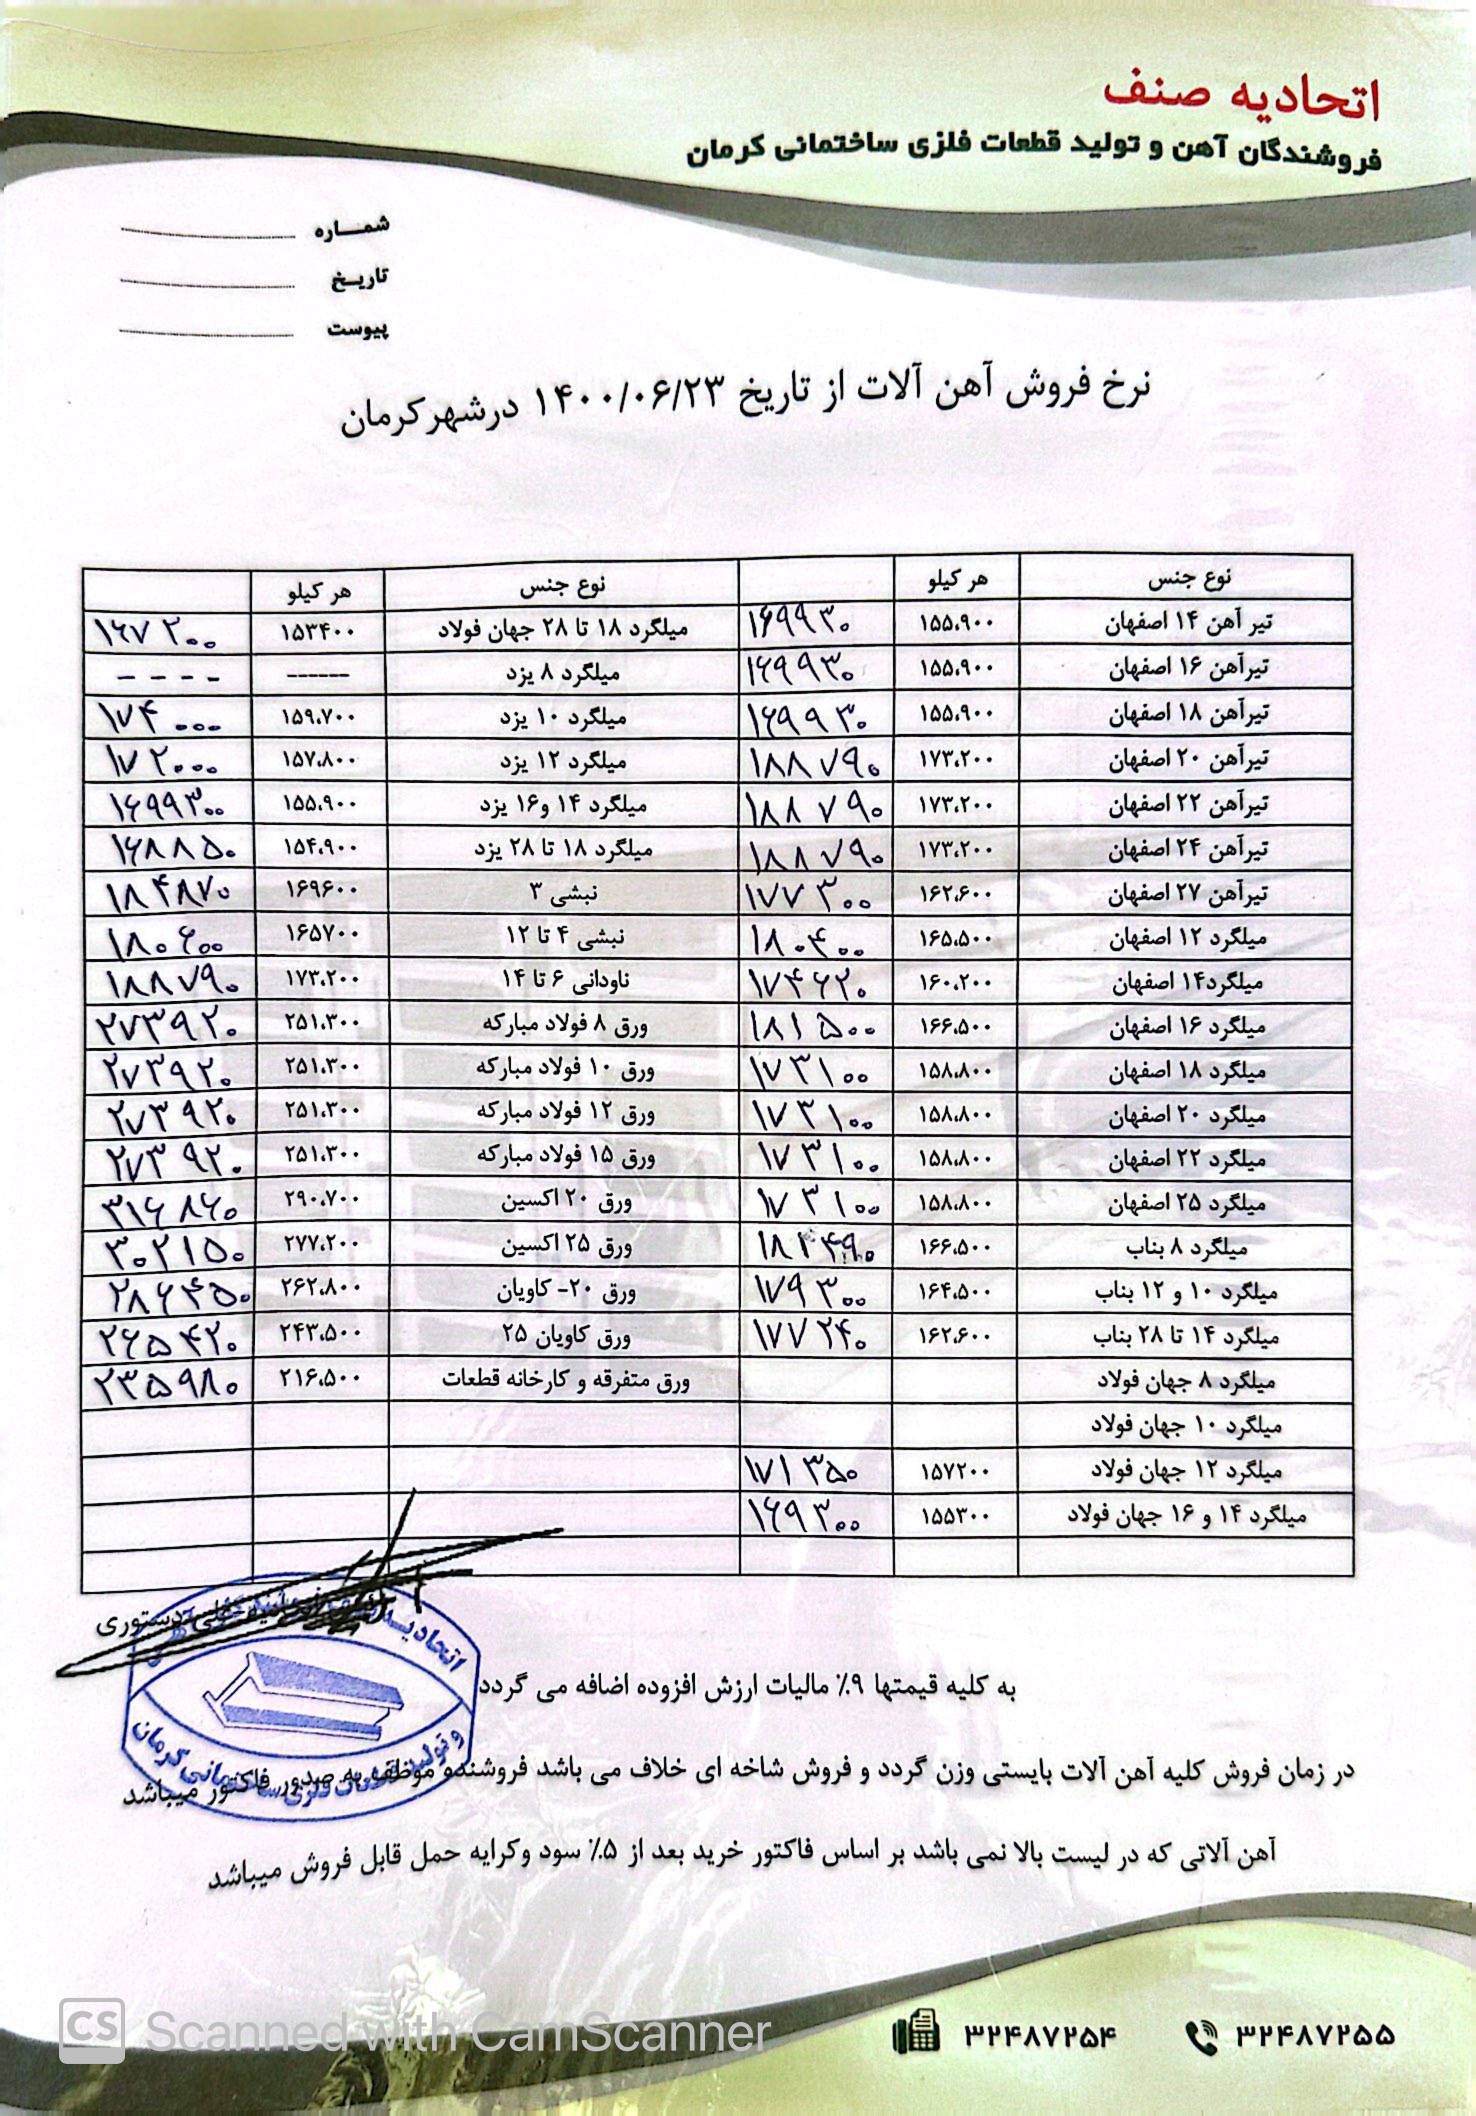 اتحادیه صنف
فروشندگان آهن و تولید قطعات فلزی ساختمانی کرمان
شمــاره
تاریـخ
پیوست
نرخ فروش آهن آلات از تاریخ ۱۴۰۰/۰۶/۲۳ درشهرکرمان
نوع جنس هر کیلو نوع جنس هر کیلو
تیر آهن ۱۴ اصفهان ۱۵۵،۹۰۰ ۱۶۹۹۳۰ میلگرد ۱۸ تا ۲۸ جهان فولاد ۱۵۳۴۰۰ ۱۶۷۲۰۰
تیرآهن ۱۶ اصفهان ۱۵۵،۹۰۰ ۱۶۹۹۳۰ میلگرد ۸ یزد ------ ----
تیرآهن ۱۸ اصفهان ۱۵۵،۹۰۰ ۱۶۹۹۳۰ میلگرد ۱۰ یزد ۱۵۹،۷۰۰ ۱۷۴۰۰۰
تیرآهن ۲۰ اصفهان ۱۷۳،۲۰۰ ۱۸۸۷۹۰ میلگرد ۱۲ یزد ۱۵۷،۸۰۰ ۱۷۲۰۰۰
تیرآهن ۲۲ اصفهان ۱۷۳،۲۰۰ ۱۸۸۷۹۰ میلگرد ۱۴ و۱۶ یزد ۱۵۵،۹۰۰ ۱۶۹۹۳۰۰
تیرآهن ۲۴ اصفهان ۱۷۳،۲۰۰ ۱۸۸۷۹۰ میلگرد ۱۸ تا ۲۸ یزد ۱۵۴،۹۰۰ ۱۶۸۸۵۰
تیرآهن ۲۷ اصفهان ۱۶۲،۶۰۰ ۱۷۷۳۰۰ نبشی ۳ ۱۶۹۶۰۰ ۱۸۴۸۷۰
میلگرد ۱۲ اصفهان ۱۶۵،۵۰۰ ۱۸۰۴۰۰ نبشی ۴ تا ۱۲ ۱۶۵۷۰۰ ۱۸۰۶۰۰
میلگرد۱۴ اصفهان ۱۶۰،۲۰۰ ۱۷۴۶۲۰ ناودانی ۶ تا ۱۴ ۱۷۳،۲۰۰ ۱۸۸۷۹۰
میلگرد ۱۶ اصفهان ۱۶۶،۵۰۰ ۱۸۱۵۰۰ ورق ۸ فولاد مبارکه ۲۵۱،۳۰۰ ۲۷۳۹۲۰
میلگرد ۱۸ اصفهان ۱۵۸،۸۰۰ ۱۷۳۱۰۰ ورق ۱۰ فولاد مبارکه ۲۵۱،۳۰۰ ۲۷۳۹۲۰
میلگرد ۲۰ اصفهان ۱۵۸،۸۰۰ ۱۷۳۱۰۰ ورق ۱۲ فولاد مبارکه ۲۵۱،۳۰۰ ۲۷۳۹۲۰
میلگرد ۲۲ اصفهان ۱۵۸،۸۰۰ ۱۷۳۱۰۰ ورق ۱۵ فولاد مبارکه ۲۵۱،۳۰۰ ۲۷۳۹۲۰
میلگرد ۲۵ اصفهان ۱۵۸،۸۰۰ ۱۷۳۱۰۰ ورق ۲۰ اکسین ۲۹۰،۷۰۰ ۳۱۶۸۶۰
میلگرد ۸ بناب ۱۶۶،۵۰۰ ورق ۲۵ اکسین ۲۷۷،۲۰۰ ۳۰۲۱۵۰
میلگرد ۱۰ و ۱۲ بناب ۱۶۴،۵۰۰ ۱۷۹۳۰۰ ورق ۲۰- کاویان ۲۶۲،۸۰۰ ۲۸۶۴۵۰
میلگرد ۱۴ تا ۲۸ بناب ۱۶۲،۶۰۰ ۱۷۷۲۴۰ ورق کاویان ۲۵ ۲۴۳،۵۰۰ ۲۶۵۴۲۰
میلگرد ۸ جهان فولاد ورق متفرقه و کارخانه قطعات ۲۱۶،۵۰۰ ۲۳۵۹۸۰
میلگرد ۱۰ جهان فولاد
میلگرد ۱۲ جهان فولاد ۱۵۷۲۰۰ ۱۷۱۳۵۰
میلگرد ۱۴ و ۱۶ جهان فولاد ۱۵۵۳۰۰ ۱۶۹۳۰۰
دستوری
اتحادیـه
و تولید قطعات فلزی ساختمانی کرمان
به کلیه قیمتها ۹٪ مالیات ارزش افزوده اضافه می گردد
در زمان فروش کلیه آهن آلات بایستی وزن گردد و فروش شاخه ای خلاف می باشد فروشنده موظف به صدور فاکتور میباشد
آهن آلاتی که در لیست بالا نمی باشد بر اساس فاکتور خرید بعد از ۵٪ سود وکرایه حمل قابل فروش میباشد
۳۲۴۸۷۲۵۵ ۳۲۴۸۷۲۵۴
CS Scanned with CamScanner